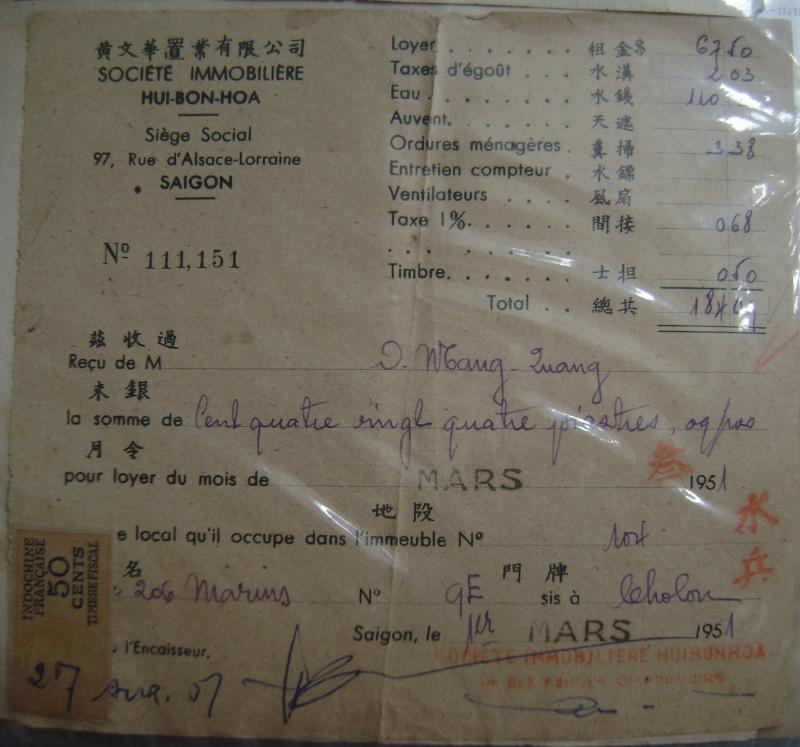 黃文華置業有限公司
SOCIÉTÉ IMMOBILIÈRE
HUI-BON-HOA
Siège Social
97, Rue d'Alsace-Lorraine
SAIGON
Nº 111,151
Loyer . . . . . . . 租金$ 67 50
Taxes d'égoût . . . 水溝 2 03
Eau . . . . . . . . 水錢 110
Auvent. . . . . . . 天遮
Ordures ménagères . 糞掃 3 38
Entretien compteur . 水鏢
Ventilateurs . . . . 風扇
Taxe 1% . . . . . . 間接 0 68
Timbre. . . . . . . 士担 0 50
Total . . 總共
茲收過
Reçu de M
來銀
la somme de Cent quatre vingt quatre piastres,
月令
pour loyer du mois de MARS 1951
叁
地段
e local qu'il occupe dans l'immeuble Nº 104
水兵
名 門牌
206 Marins Nº 9E sis à Cholon
Saigon, le 1er MARS 1951
l'Encaisseur.
SOCIÉTÉ IMMOBILIÈRE HUIBONHOA
INDOCHINE FRANÇAISE
50 CENTS
TIMBRE FISCAL
27